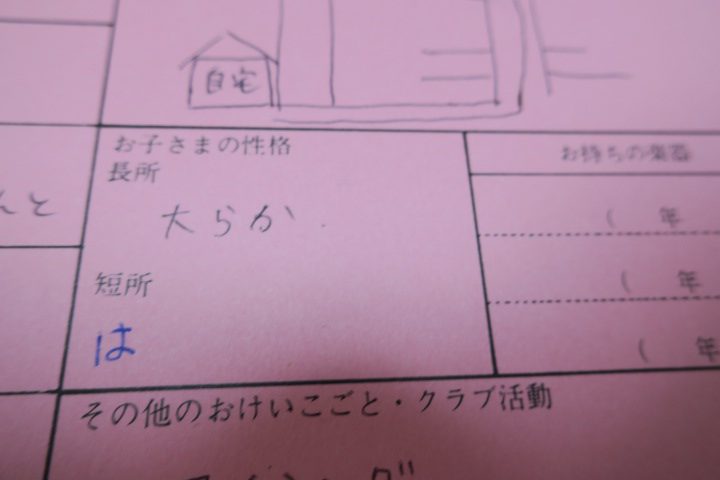 自宅
お子さまの性格
長所
大らか.
短所
は
お持ちの楽器
( 年
( 年
( 年
んと
その他のおけいこごと・クラブ活動